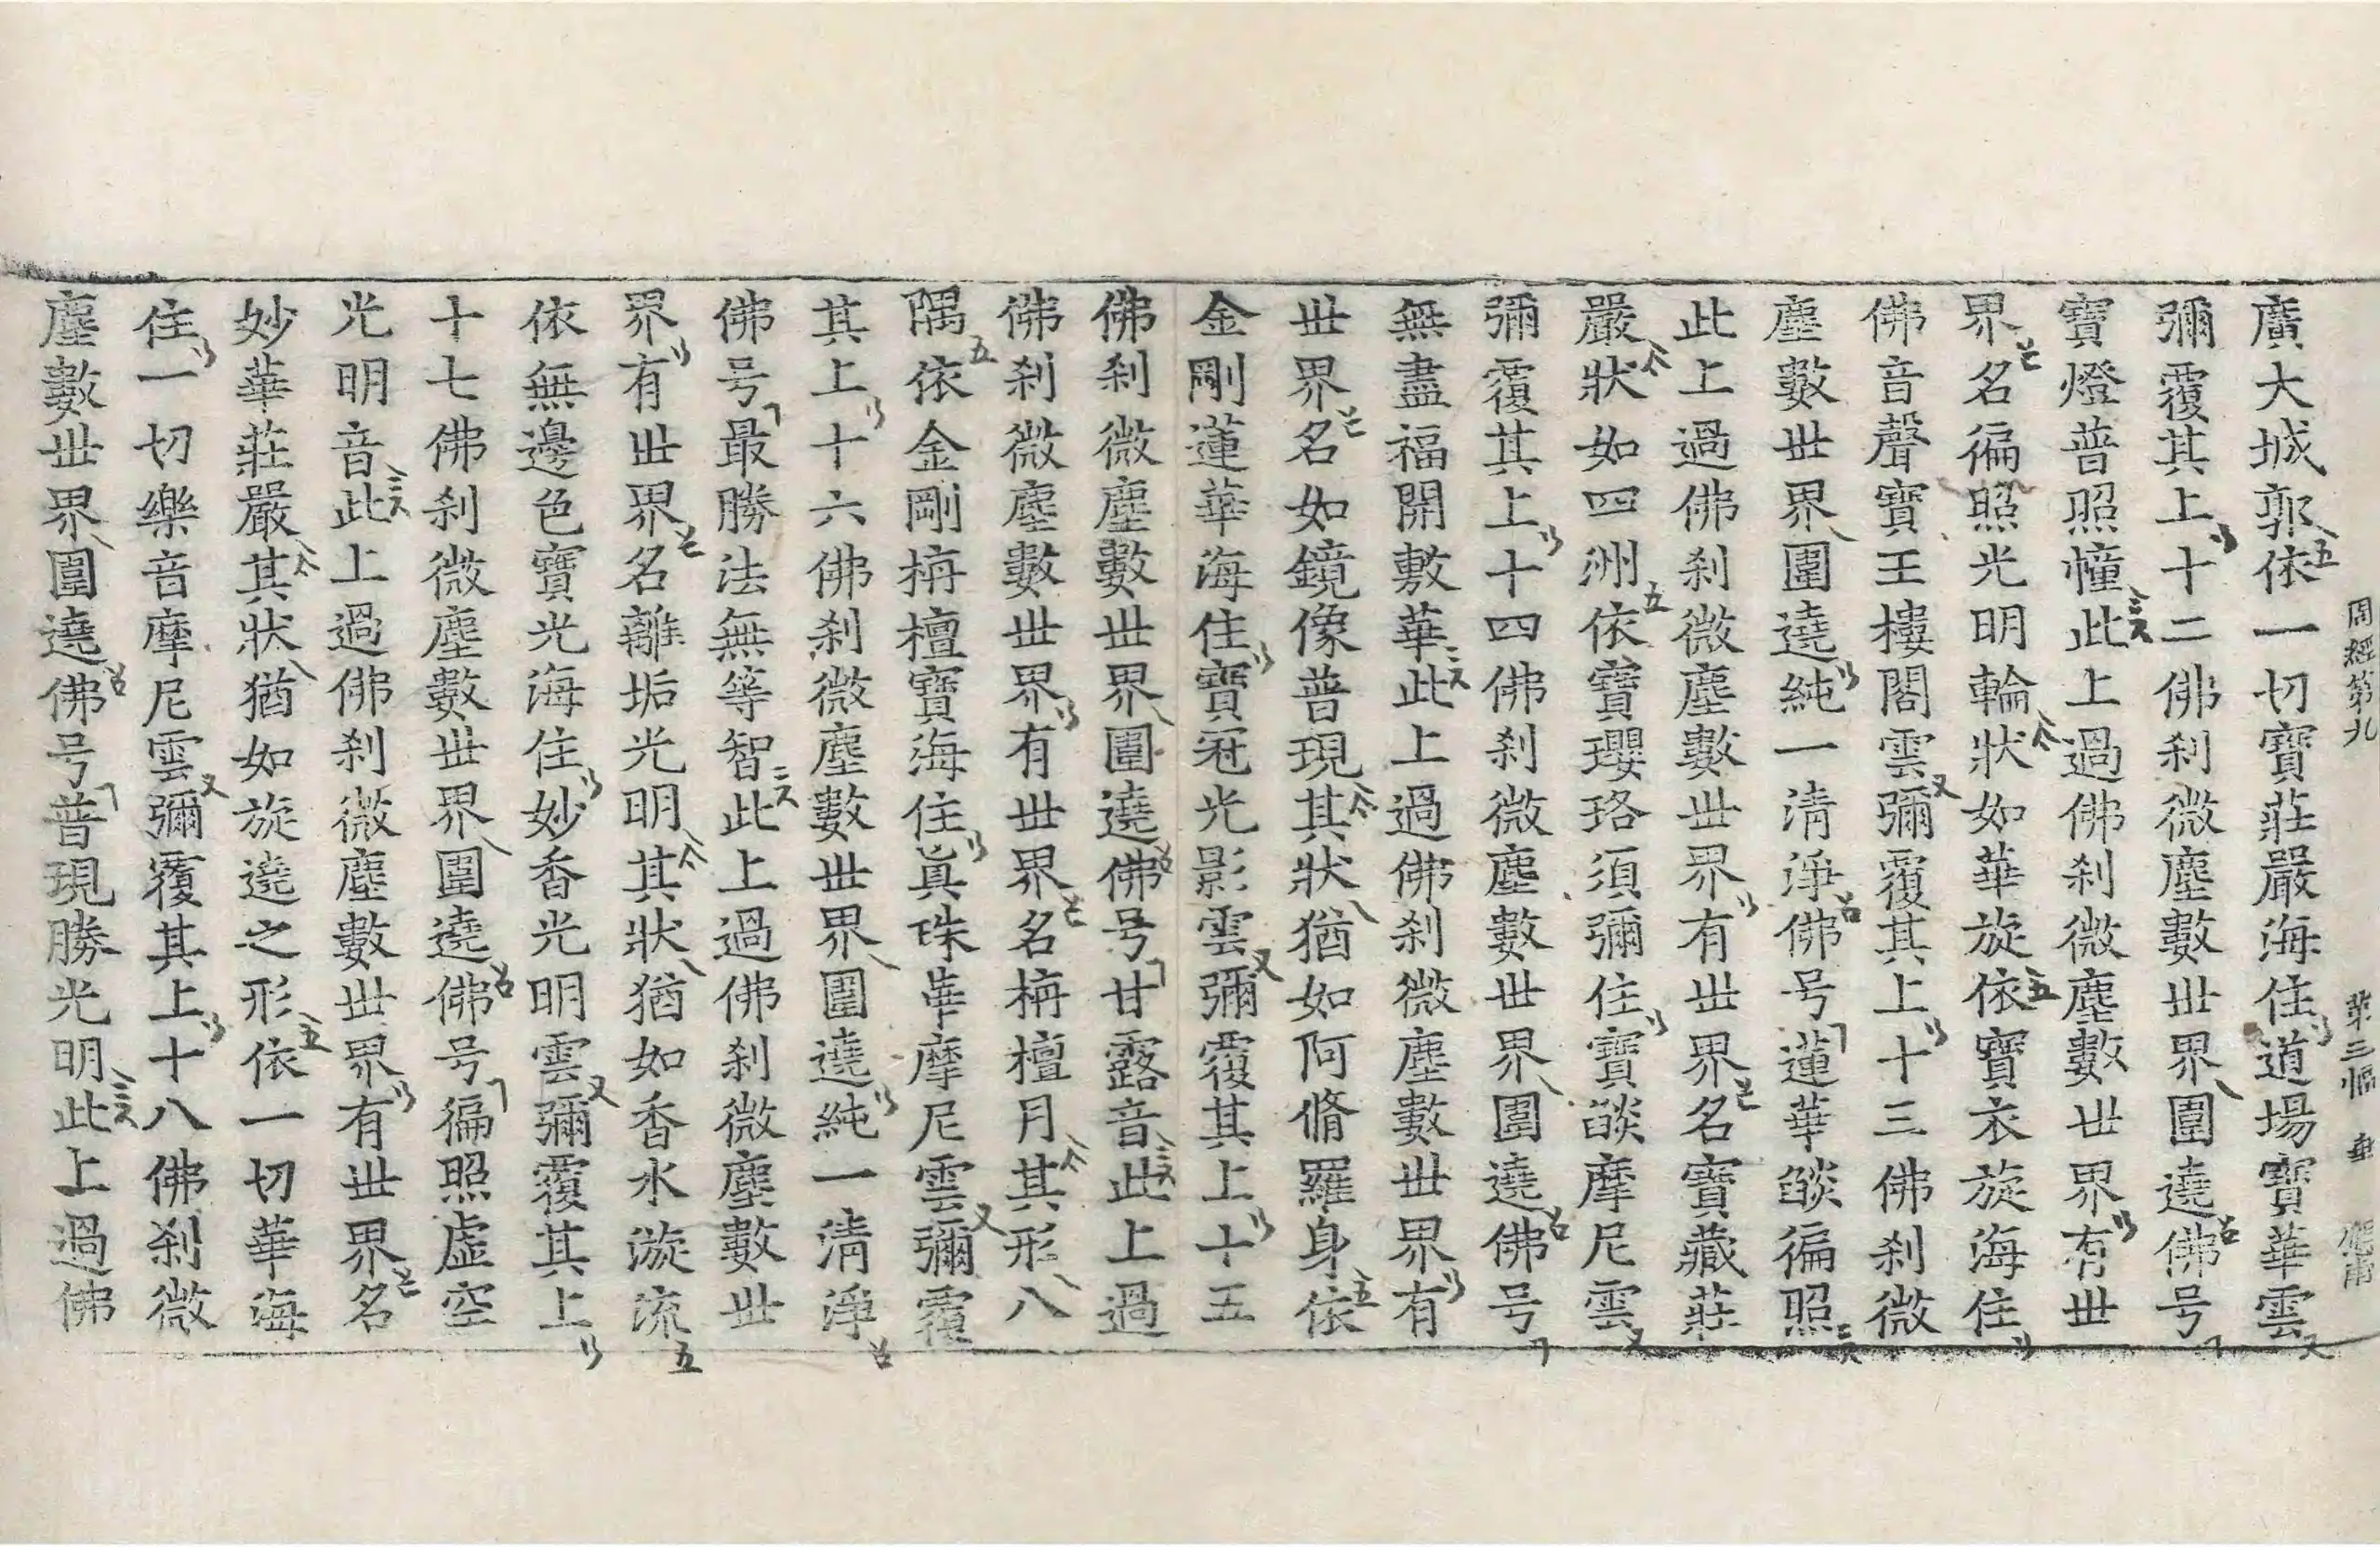 周經第九 第三幅 垂
廣大城郭依一切寶莊嚴海住道場寶華雲
彌覆其上十二佛刹微塵數世界圍遶佛号
寶燈普照幢此上過佛刹微塵數世界有世
界名徧照光明輪狀如華旋依寶衣旋海住
佛音聲寶王樓閣雲彌覆其上十三佛刹微
塵數世界圍遶純一清淨佛号蓮華燄徧照
此上過佛刹微塵數世界有世界名寶藏莊
嚴狀如四洲依寶瓔珞須彌住寶燄摩尼雲
彌覆其上十四佛刹微塵數世界圍遶佛号
無盡福開敷華此上過佛刹微塵數世界有
世界名如鏡像普現其狀猶如阿脩羅身依
金剛蓮華海住寶冠光影雲彌覆其上十五
佛刹微塵數世界圍遶佛号甘露音此上過
佛刹微塵數世界有世界名栴檀月其形八
隅依金剛栴檀寶海住真珠華摩尼雲彌覆
其上十六佛刹微塵數世界圍遶純一清淨
佛号最勝法無等智此上過佛刹微塵數世
界有世界名離垢光明其狀猶如香水漩流
依無邊色寶光海住妙香光明雲彌覆其上
十七佛刹微塵數世界圍遶佛号徧照虛空
光明音此上過佛刹微塵數世界有世界名
妙華莊嚴其狀猶如旋遶之形依一切華海
住一切樂音摩尼雲彌覆其上十八佛刹微
塵數世界圍遶佛号普現勝光明此上過佛